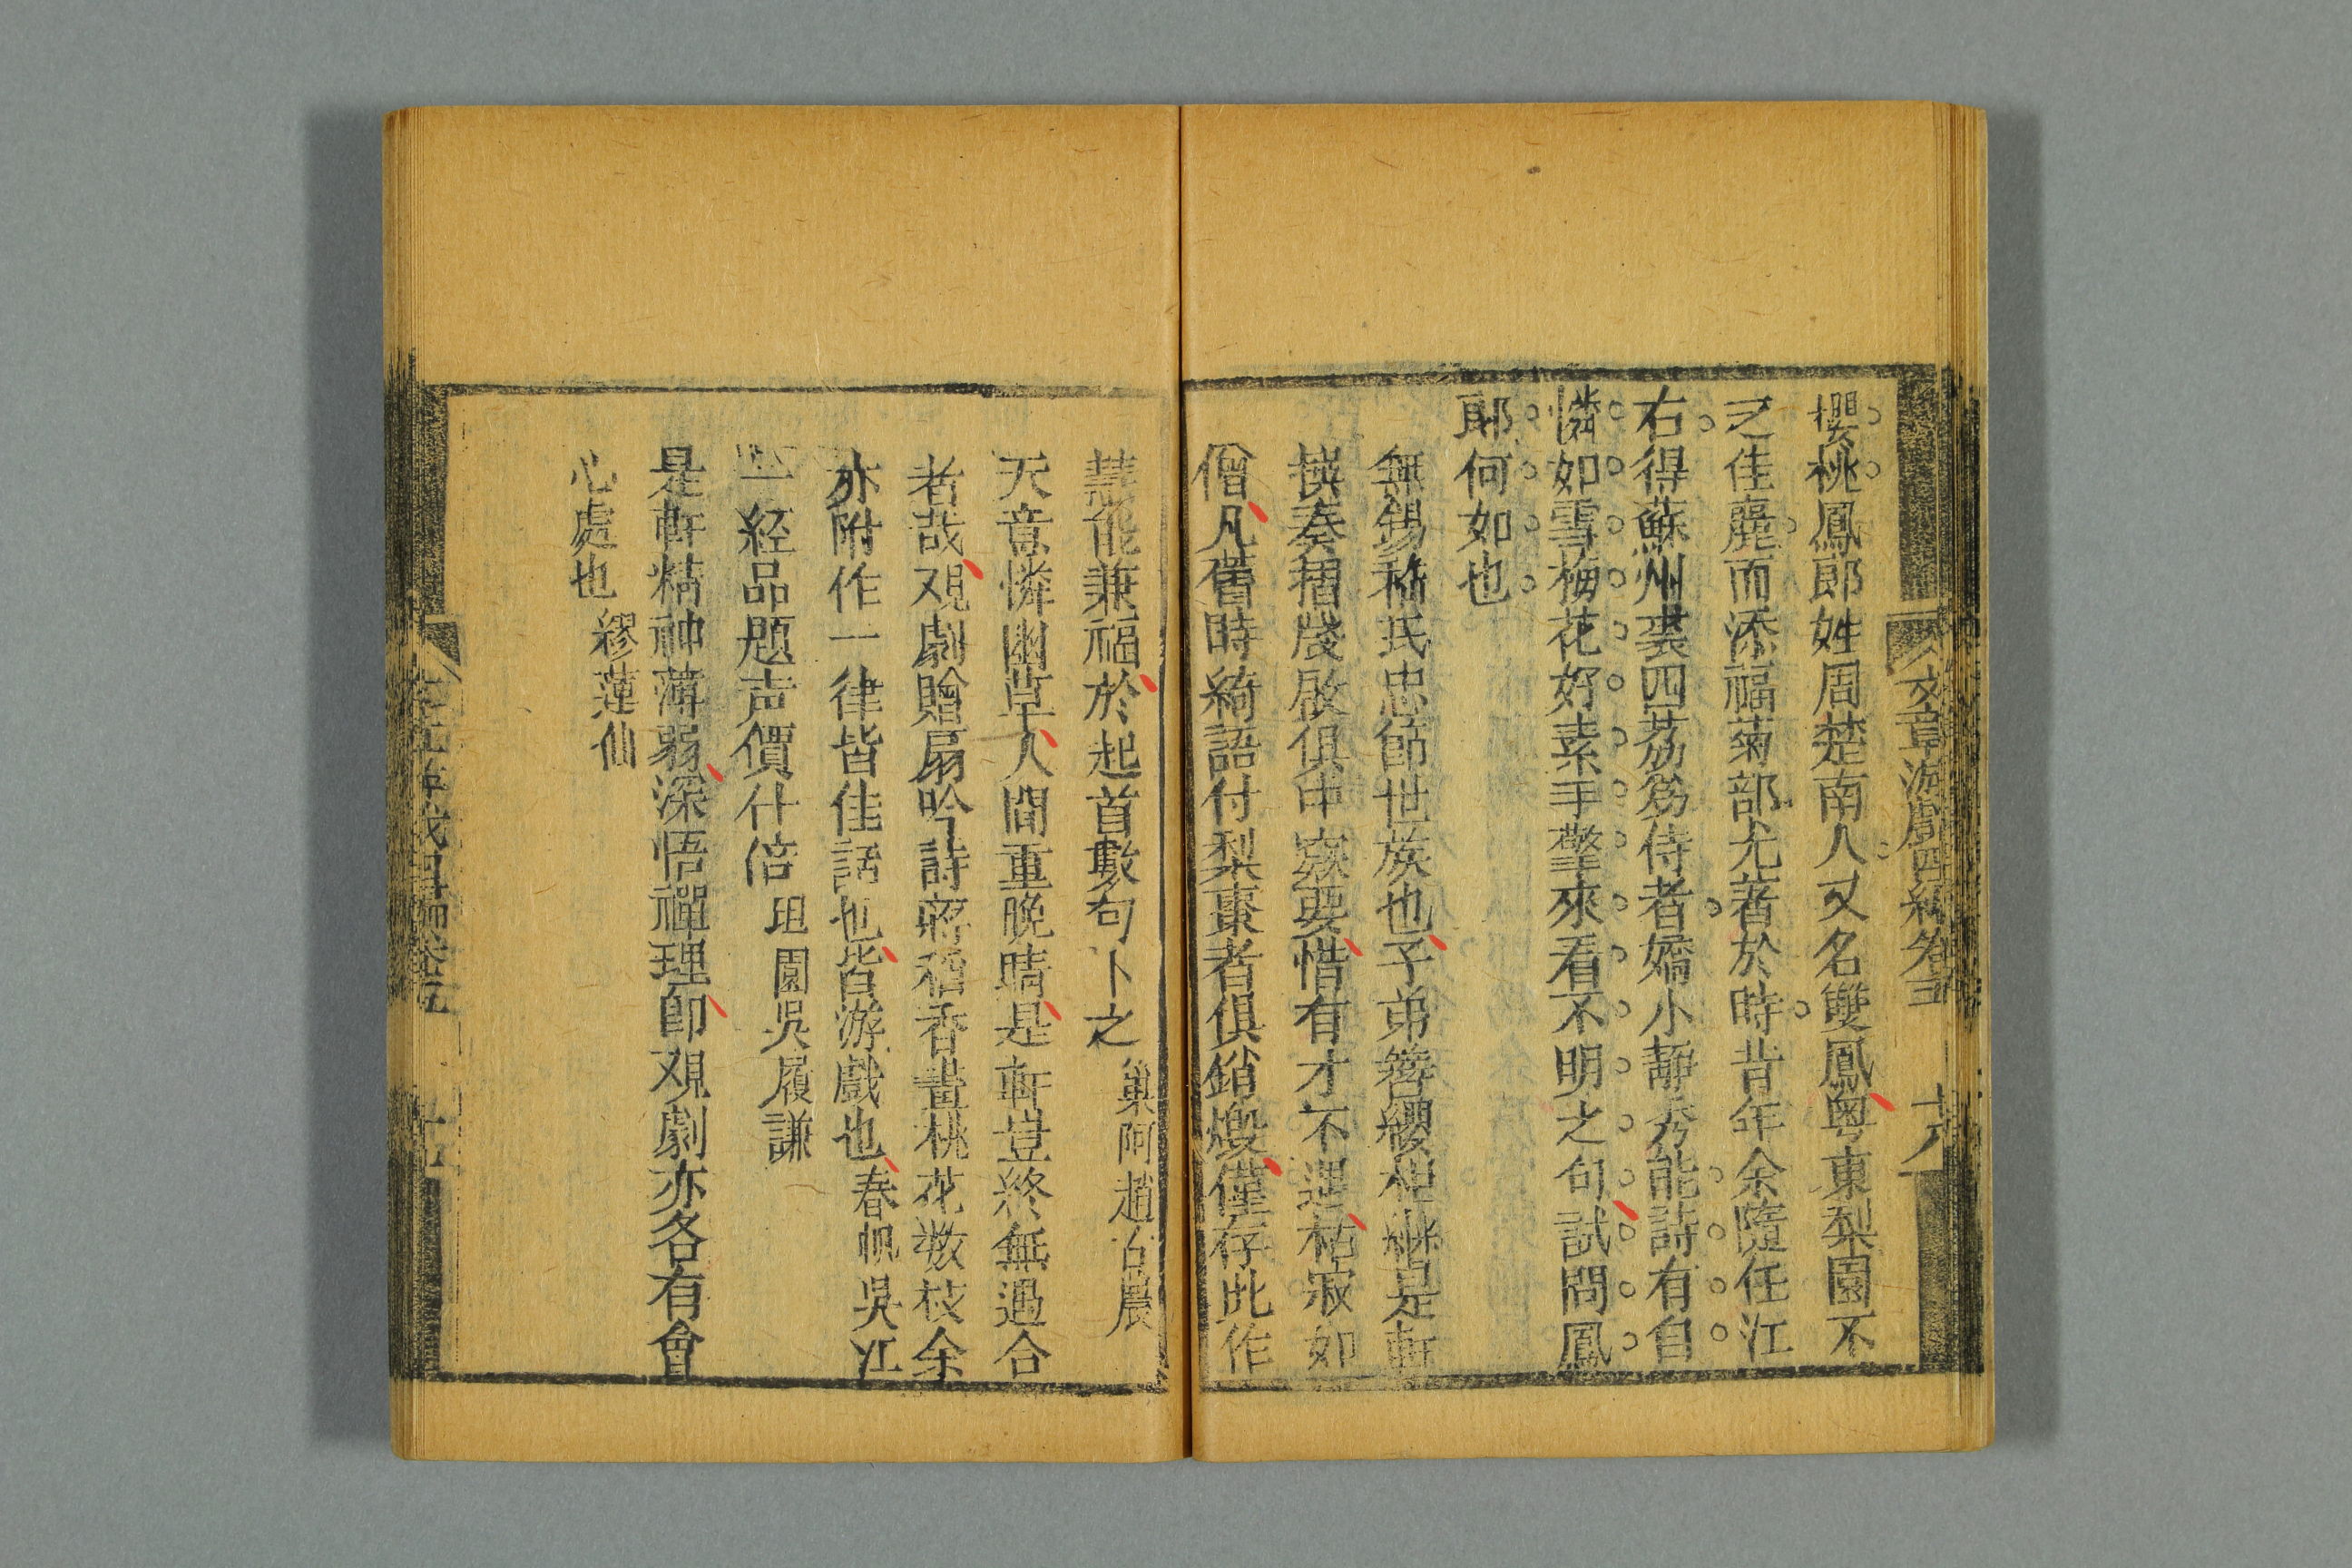 文章游戲四編卷五 十六
櫻桃鳳郎姓周楚南人又名雙鳳粤東梨園不
之佳麗而添福菊部尤著於時昔年余隨任江
右得蘇州裘四荔為侍者嬌小靜秀能詩有自
憐如雪梅花好素手擎來看不明之句試問鳳
郎何如也
無錫秫氏忠節世族也子弟簪纓相繼是軒
撰奏摺牋啟俱中窾要惜有才不遇枯寂如
僧凡舊時綺語付梨棗者俱銷燬僅存此作
慧能兼福於起首數句卜之 巢阿趙古農
天意憐幽草人間重晚晴是軒豈終無遇合
者哉观劇贈扇吟詩蔣稻香畫桃花数枝余
亦附作一律皆佳話也皆游戲也春帆吳江
一经品題声價什倍 坦園吳履謙
是軒精神薄弱深悟禪理即观劇亦各有會
心處也 繆蓮仙